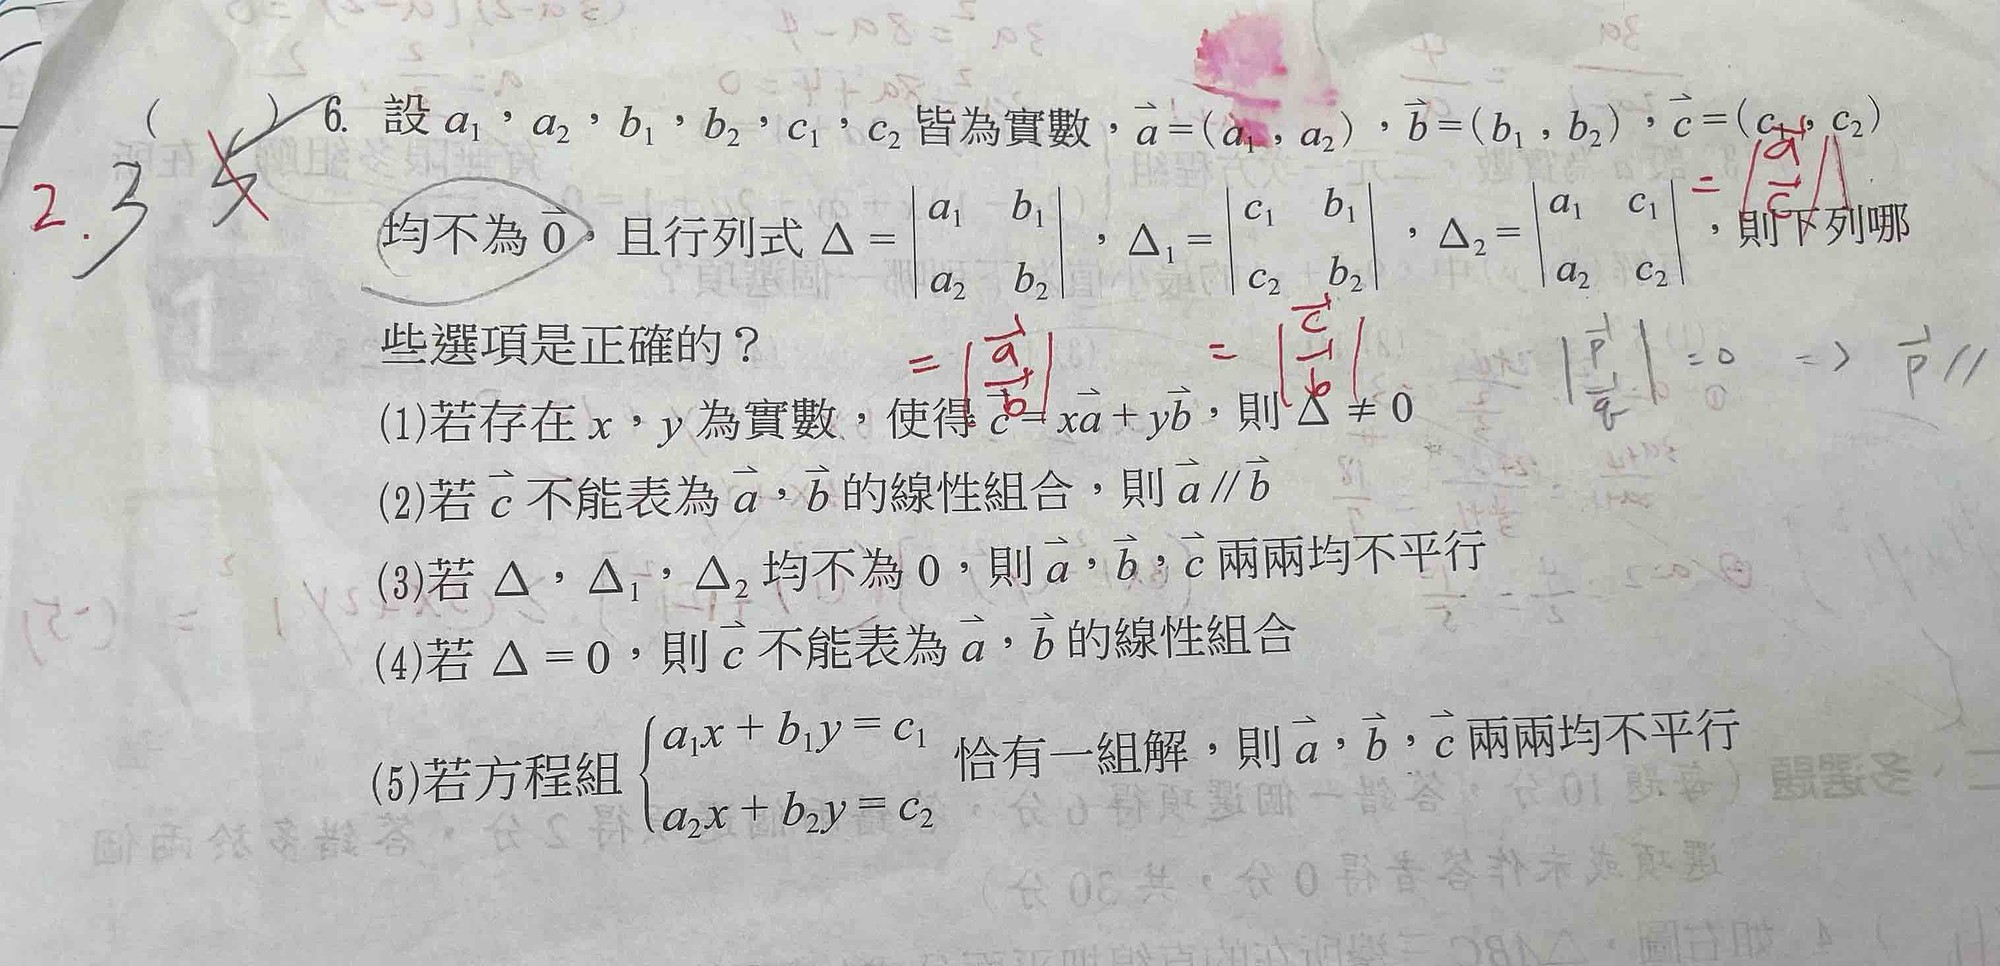 ( ) 6. 設 a₁，a₂，b₁，b₂，c₁，c₂ 皆為實數，a⃗=(a₁，a₂)，b⃗=(b₁，b₂)，c⃗=(c₁，c₂)
2. 3 5
均不為 0⃗，且行列式 Δ = |a₁ b₁; a₂ b₂|，Δ₁ = |c₁ b₁; c₂ b₂|，Δ₂ = |a₁ c₁; a₂ c₂|，則下列哪
= |a⃗; c⃗|
些選項是正確的？
= |a⃗; b⃗| = |c⃗; b⃗| |p⃗; q⃗| = 0 => p⃗ //
(1)若存在 x，y 為實數，使得 c⃗ = xa⃗ + yb⃗，則 Δ ≠ 0
(2)若 c⃗ 不能表為 a⃗，b⃗ 的線性組合，則 a⃗ // b⃗
(3)若 Δ，Δ₁，Δ₂ 均不為 0，則 a⃗，b⃗，c⃗ 兩兩均不平行
(4)若 Δ = 0，則 c⃗ 不能表為 a⃗，b⃗ 的線性組合
(5)若方程組 { a₁x + b₁y = c₁
a₂x + b₂y = c₂ 恰有一組解，則 a⃗，b⃗，c⃗ 兩兩均不平行